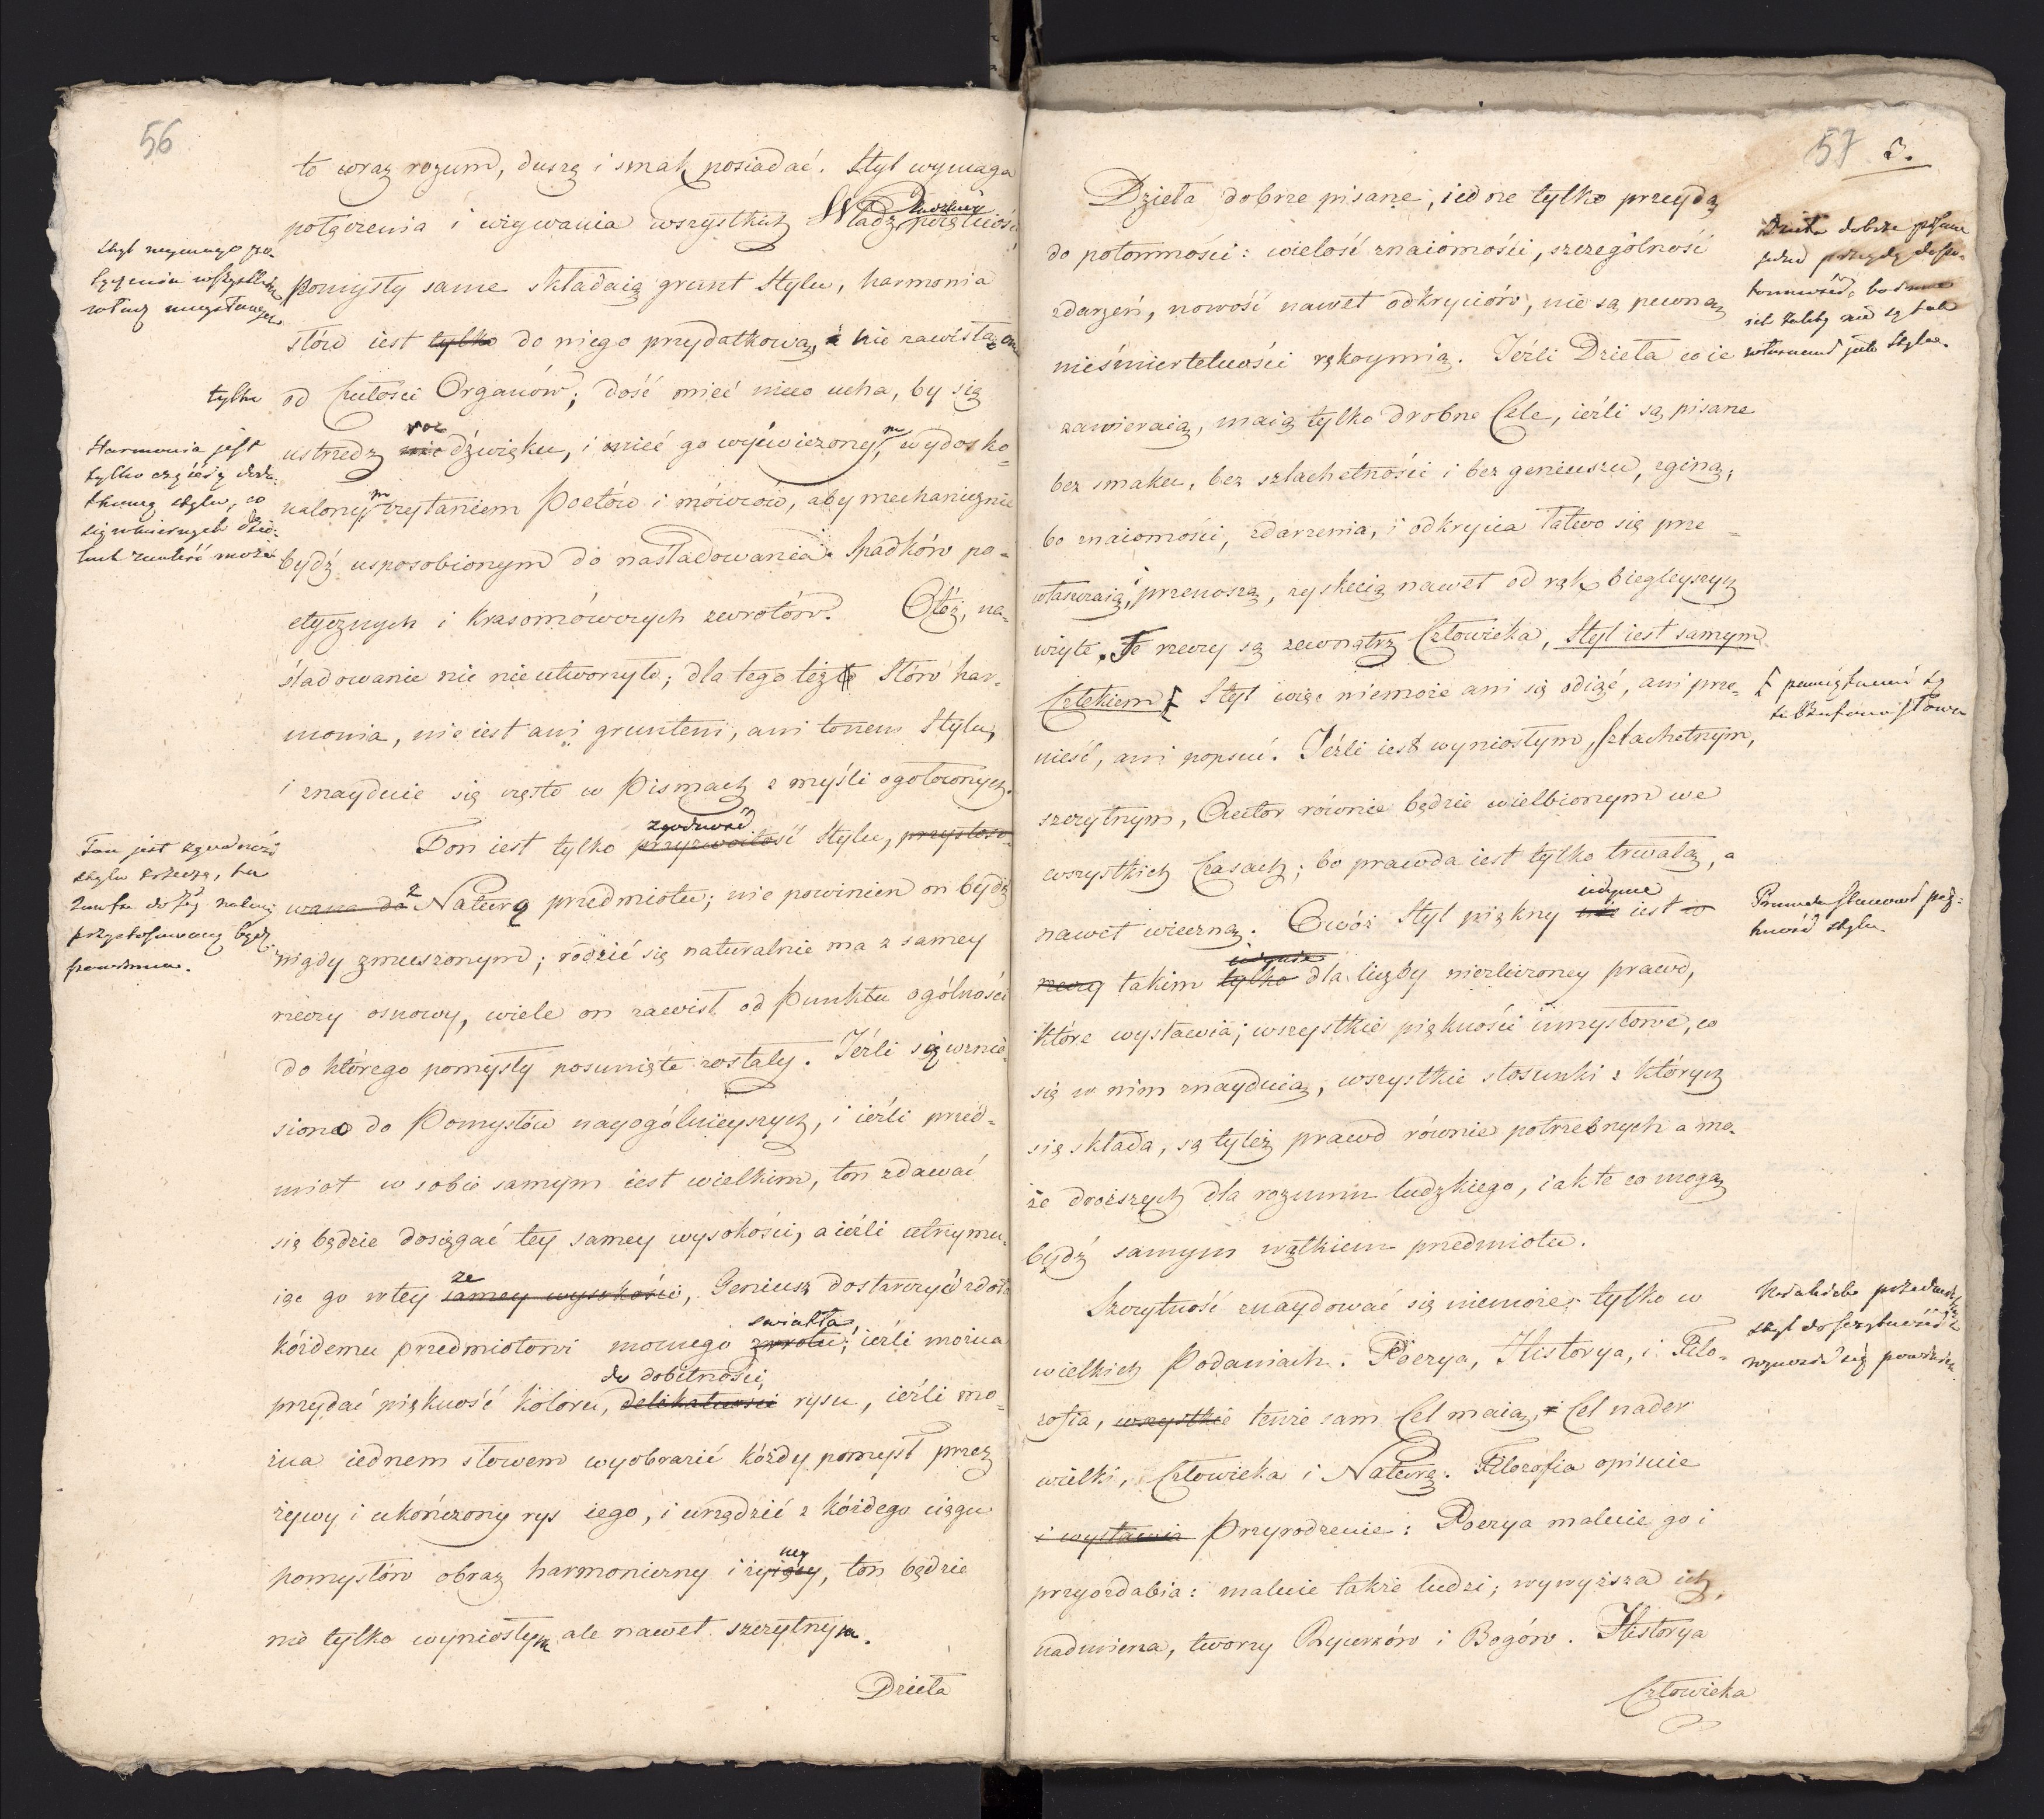 56
to wraz rozum, duszę i smak posiadać. Styl wymaga
połączenia i używania wszystkich Władz
Pomysły same składaią grunt Stylu, harmonia
słów iest tylko do niego przydatkową, i nie zawisła
od Czułości Organów; dość mieć nieco ucha, by się
ustrzedz roz dźwięku, i mieć go wyćwiczonym, wydosko-
nalonym czytaniem Poetów i mówców, aby mechanicznie
bydź usposobionym do naśladowania Spadków po-
etycznych i krasomówczych zwrotów. Otóż, na-
śladowanie nic nie utworzyło; dla tego też Słów har-
monia, nie iest ani gruntem, ani tonem Stylu,
i znayduie się często w Pismach z myśli ogołoconych.
Ton iest tylko zgodność przyzwoitość Stylu, przystoso-
wana do z Naturą przedmiotu; nie powinien on bydź
nigdy zmuszonym; rodzić się naturalnie ma z samey
rzeczy osnowy, wiele on zawisł od Punktu ogólności
do którego pomysły posunięte zostały. Jeźli się wznie-
siono do Pomysłów nayogólnieyszych, i ieźli przed-
miot w sobie samym iest wielkim, ton zdawać
się będzie dosięgać tey samey wysokości, a ieźli utrzymu-
iąc go w tey że samey wysokości, Geniusz dostarczyć zdoła
kóżdemu przedmiotowi mocnego światła, zwrotu; ieźli można
przydać piękność koloru, do dobitności delikatności rysu, ieźli mo-
żna iednem słowem wyobrazić kóżdy pomysł przez
żywy i ukończony rys iego, i urządzić z kóżdego ciągu
pomysłów obraz harmoniczny i żyiący, ton będzie
nie tylko wyniosłym ale nawet szczytnym.
Dzieła
Styl wymaga po-
łączenia wszystkich
władz umysłowych
tylko
Harmonia jest
tylko częścią doda-
tkową stylu, co
się w
Ton jest zgodność
stylu z rzeczą, on
zawsze do jey natury
przystosowany bydź
powinien.
57 3.
Dzieła dobrze pisane, iedne tylko przeydą
do potomności: wielość znaiomości, szczególność
zdarzeń, nowość nawet odkryciów, nie są pewną
nieśmiertelności rękoymią. Jeźli Dzieła co ie
zawieraią, maią tylko drobne Cele, ieźli są pisane
bez smaku, bez szlachetności i bez geniuszu, zginą;
bo znaiomości, zdarzenia, i odkrycia łatwo się prze-
właszczaią, przenoszą, zyskuią nawet od rąk biegleyszych
użyte. Te rzeczy są zewnątrz Człowieka, Styl iest samym
Człekiem Styl więc niemoże ani się odiąć, ani prze-
nieść, ani popsuć. Jeźli iest wyniosłym, szlachetnym,
szczytnym, Autor równie będzie wielbionym we
wszystkich Czasach; bo prawda iest tylko trwałą, a
nawet wieczną. Owóż Styl piękny iedynie nie iest w
rzeczy takim iedynie tylko dla liczby niezliczoney prawd,
które wystawia; wszystkie piękności umysłowe, co
się w nim znayduią, wszystkie stosunki z których
się składa, są tyleż prawd równie potrzebnych a mo-
że droższych dla rozumu ludzkiego, iak te co mogą
bydź samym wątkiem przedmiotu.
Szczytność znaydować się niemoże tylko w
wielkich Podaniach. Poezya, Historya, i Filo-
zofia, wszystkie tenże sam Cel maią, i Cel nader
wielki, Człowieka i Naturę. Filozofia opisuie
i wystawia Przyrodzenie: Poezya maluie go i
przyozdabia: maluie także ludzi; wywyższa ich,
nadmienia, tworzy Rycerzów i Bogów. Historya
Człowieka
Dzieła dobrze pisane
jedne przeydą do po-
tomności, bo inne
ich zalety nie są tak
własnemi jak styl.
pamiętne są
te Bufona słowa
Prawda stanowi pię-
kność stylu.